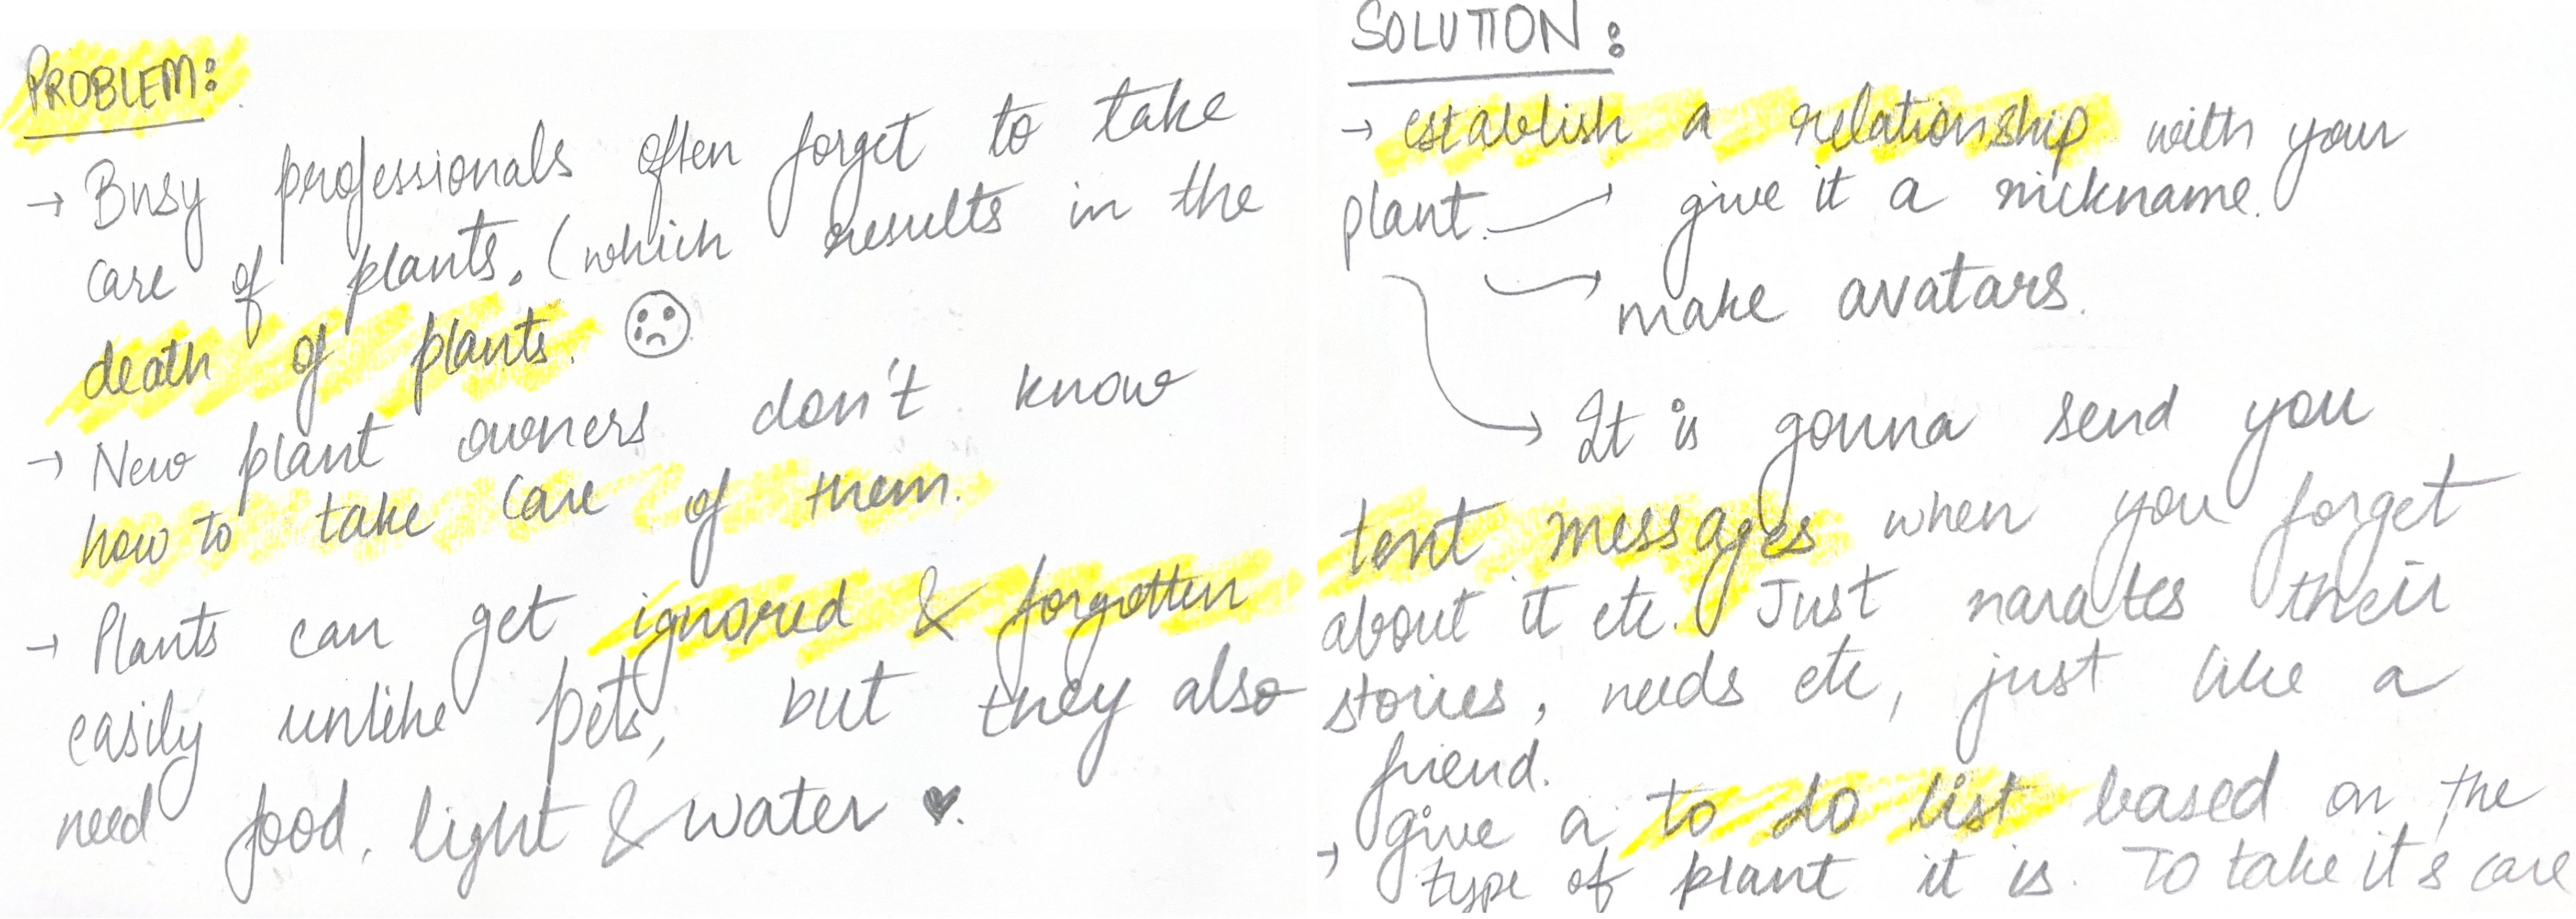 PROBLEM:
→ Busy professionals often forget to take
care of plants. (which results in the
death of plants.
→ New plant owners don't know
how to take care of them.
→ Plants can get ignored & forgotten
easily unlike pets, but they also
need food, light & water ♥.
SOLUTION:
→ establish a relationship with your
plant. → give it a nickname.
→ make avatars.
→ It is gonna send you
text messages when you forget
about it etc. Just narates their
stories, needs etc, just like a
friend.
→ give a to do list based on the
type of plant it is. To take it's care